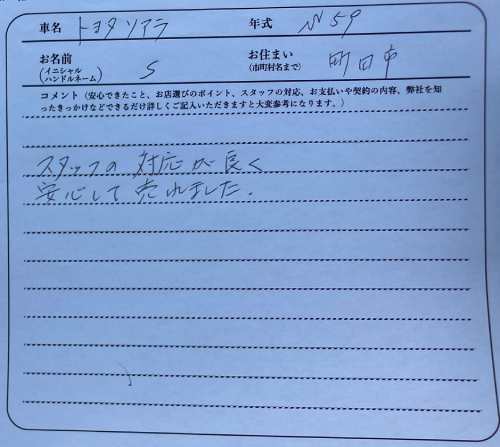 車名 トヨタソアラ 年式 S59
お名前 (イニシャル ハンドルネーム) S お住まい (市町村名まで) 町田市
コメント (安心できたこと、お店選びのポイント、スタッフの対応、お支払いや契約の内容、弊社を知
ったきっかけなどできるだけ詳しくご記入いただきますと大変参考になります。)
スタッフの対応が良く
安心して売れました.